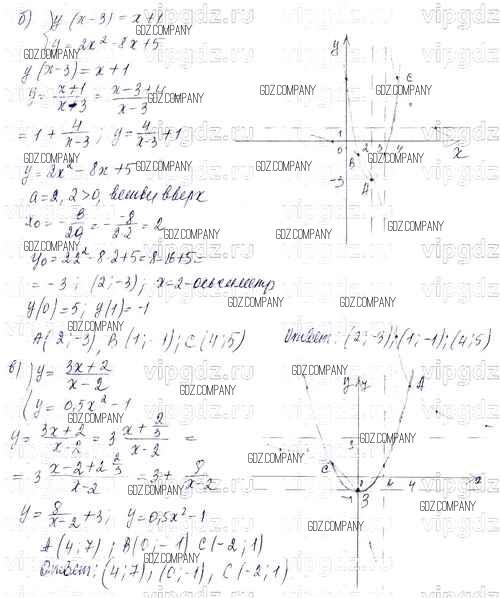 б) { y(x-3) = x+1
y = 2x² - 8x + 5
y(x-3) = x+1
y = (x+1)/(x-3) = (x-3+4)/(x-3) =
= 1 + 4/(x-3); y = 4/(x-3) + 1
y = 2x² - 8x + 5
a = 2, 2>0, ветви вверх
x₀ = -в/2a = - -8/2·2 = 2
y₀ = 2·2² - 8·2+5 = 8-16+5 =
= -3; (2; -3); x=2 - ось симметр
y(0) = 5; y(1) = -1
A(2; -3), B(1; -1); C(4; 5)
Ответ: (2; -3); (1; -1); (4; 5)
y
C
1
0
2
3
4
x
B
-3
A
в) { y = (3x+2)/(x-2)
y = 0,5x² - 1
y = (3x+2)/(x-2) = 3 (x + 2/3)/(x-2) =
= 3 (x-2+2 2/3)/(x-2) = 3 + 8/(x-2)
y = 8/(x-2) + 3; y = 0,5x² - 1
A(4; 7); B(0; -1) C(-2; 1)
Ответ: (4; 7), (0; -1), C(-2; 1)
A
3
C
-1
4
x
GDZ.COMPANY
vipgdz.ru